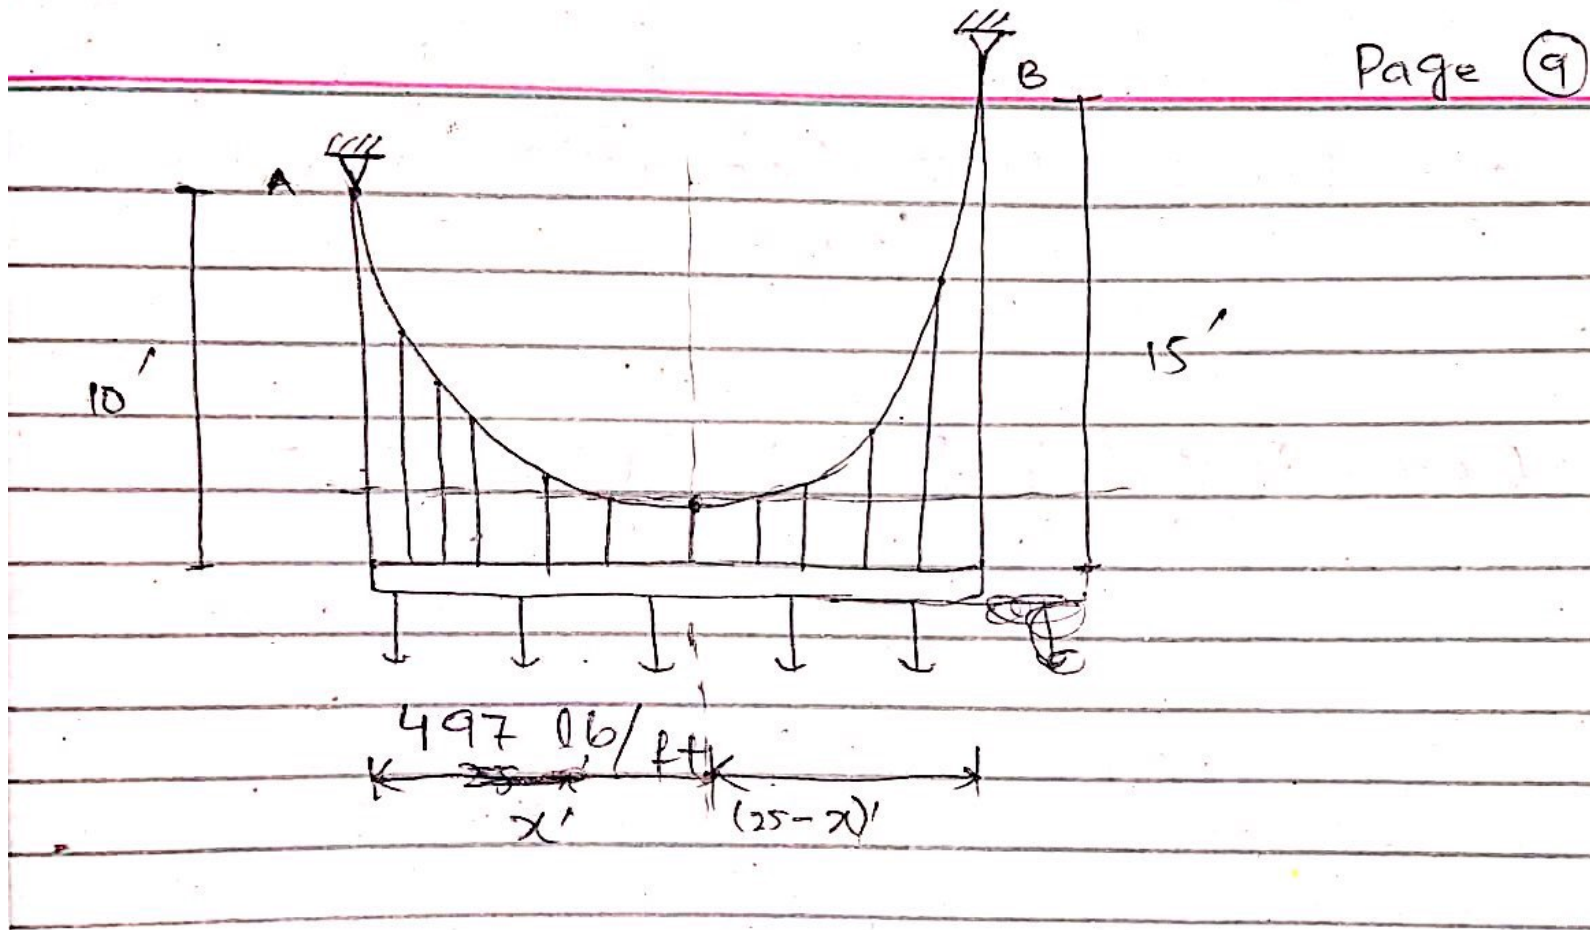 Page 9
B
A
10'
15'
497 lb/ft
x'
(25-x)'